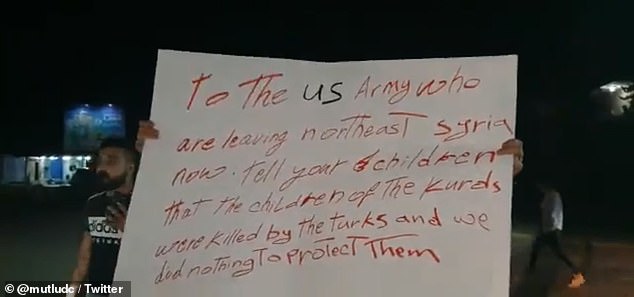 To The US Army who
are leaving northeast Syria
now. Tell your children
that the children of the Kurds
were killed by the turks and we
did nothing To protect Them
adidas
© @mutludc / Twitter